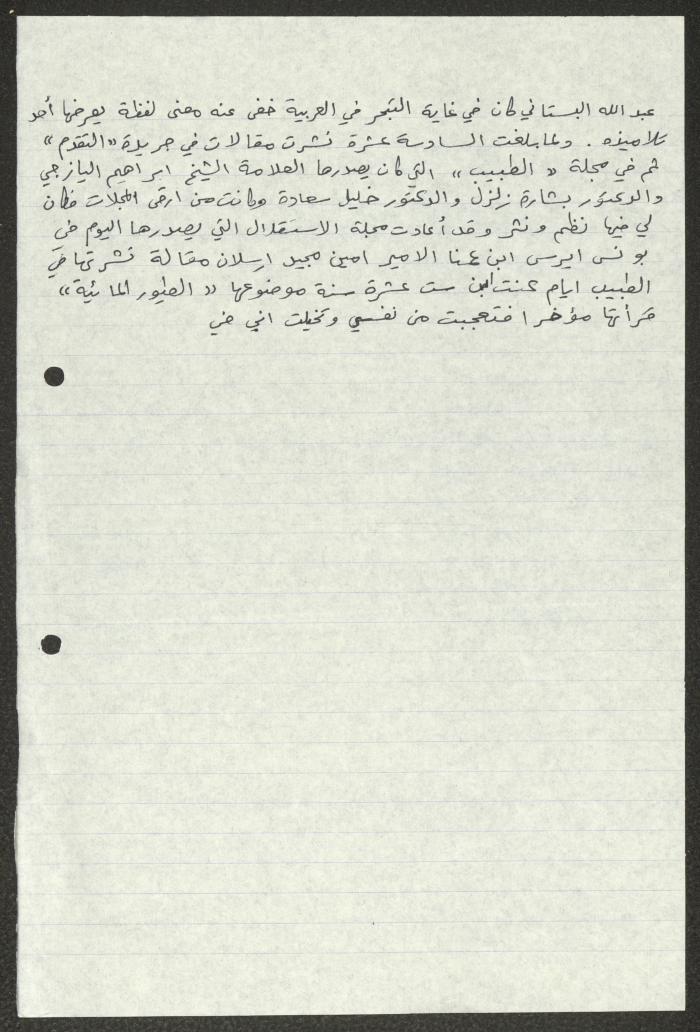 عبد الله البستاني كان في غاية التبحر في العربية خفى عنه معنى لفظة يعرضها أحد
تلاميذه . ولما بلغت السادسة عشرة نشرت مقالات في جريدة «التقدم»
ثم في مجلة « الطبيب » التي كان يصدرها العلامة الشيخ ابراهيم اليازجي
والدكتور بشارة زلزل والدكتور خليل سعادة وكانت من ارقى المجلات فكان
لي فيها نظم ونثر وقد أعادت مجلة الاستقلال التي يصدرها اليوم في
بونس ايرس ابن عمنا الامير امين مجيد ارسلان مقالة نشرتها في
الطبيب ايام كنت ابن ست عشرة سنة موضوعها « الطيور المائية »
قرأتها مؤخرا فتعجبت من نفسي وتخيلت اني في